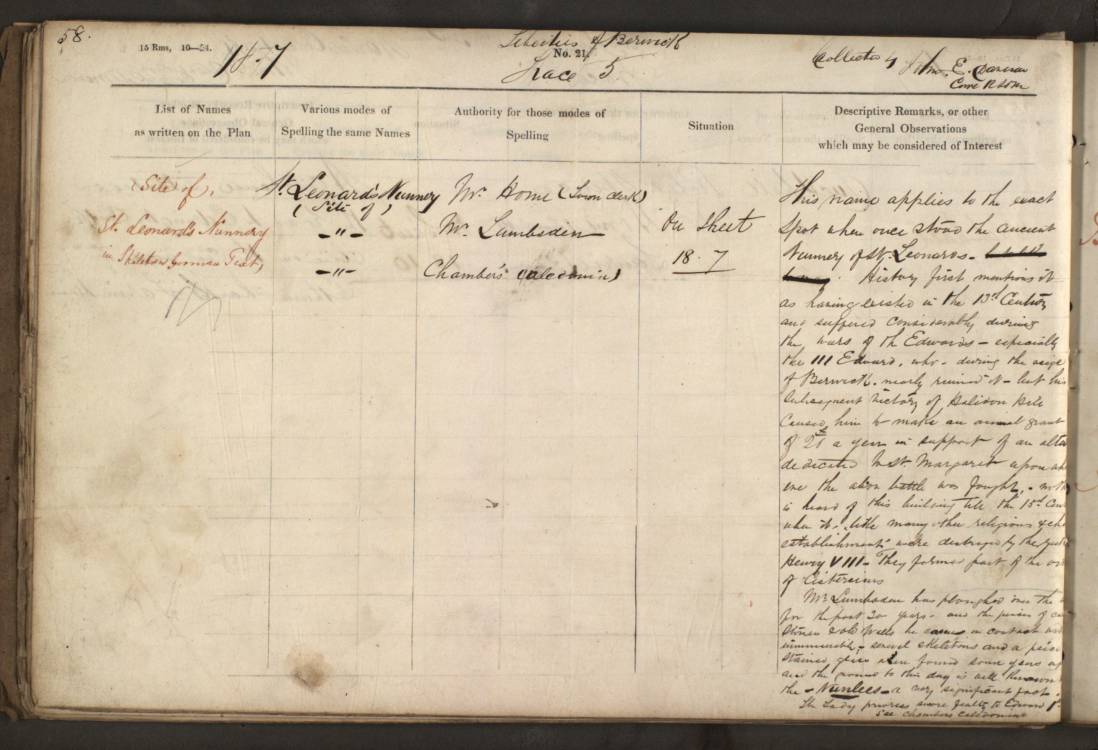 58.
15 Rms, 10—54.
18.7
Liberties of Berwick
No. 21.
Trace 5
Collected by E.
List of Names
as written on the Plan
Various modes of
Spelling the same Names
Authority for those modes of
Spelling
Situation
Descriptive Remarks, or other
General Observations
which may be considered of Interest
(Site of)
St. Leonard's Nunnery
in Skeleton German Text
St. Leonard's Nunnery
(Site of)
-"-
-"-
Mr. Home (Town clerk)
Mr. Lumbsden
Chambers Caledonia)
On Sheet
18.7
This name applies to the exact
Spot when once stood the ancient
Nunnery of St. Leonards -
History first mentions it
as having existed in the 13th Century
and suffered considerably during
the wars of the Edwards - especially
the III Edward, who - during the seige
of Berwick, nearly ruined it - but his
Subsequent victory of Halidon Hill
Caused him to make an annual grant
of a year in support of an alta
dedicated to St. Margaret upon
eve the above battle was fought, -
is heard of this building till the 15th Cen
when it, like many other religious
establishments were destroyed by the
Henry VIII - They formed part of the or
of Cistercians
Mr. Lumbsden has ploughed over the
for the past 20 years - and the
Stones & old Walls he comes in contact
innumerable - several skeletons and a piece
stained glass were found some years ag
and the ground to this day is well Known
the - Nunlees - a very significant fact.
The Lady prioress swore fealty to Edward 1st
See Chambers Caledonia